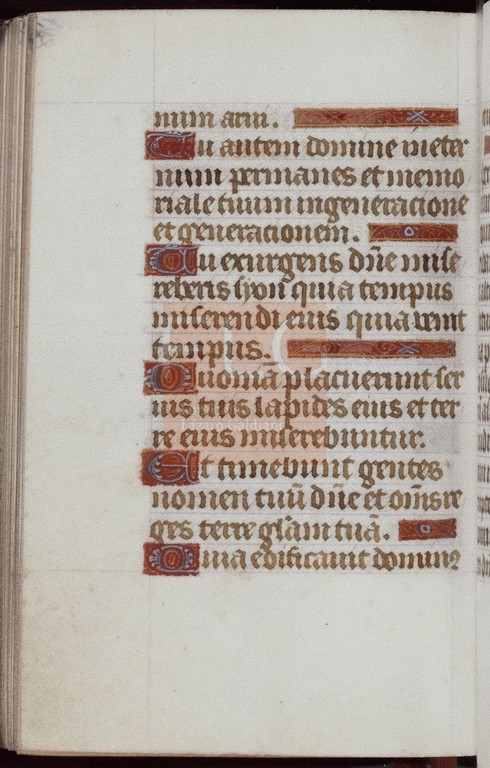 num arui.
Tu autem domine ineter
num permanes et memo
riale tuum ingeneracione
et generacionem.
Tu exurgens dn̄e mise
reberis syon quia tempus
miserendi eius quia venit
tempus.
Quoniā placuerunt ser
uis tuis lapides eius et ter
re eius miserebuntur.
Et timebunt gentes
nomen tuū dn̄e et om̄s re
ges terre glām tuā.
Quia edificauit dominus
Lázaro Galdiano